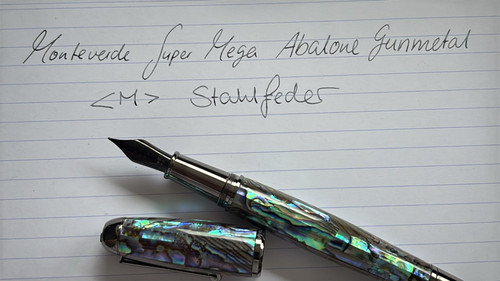 Monteverde Super Mega Abalone Gunmetal
<M> Stahlfeder